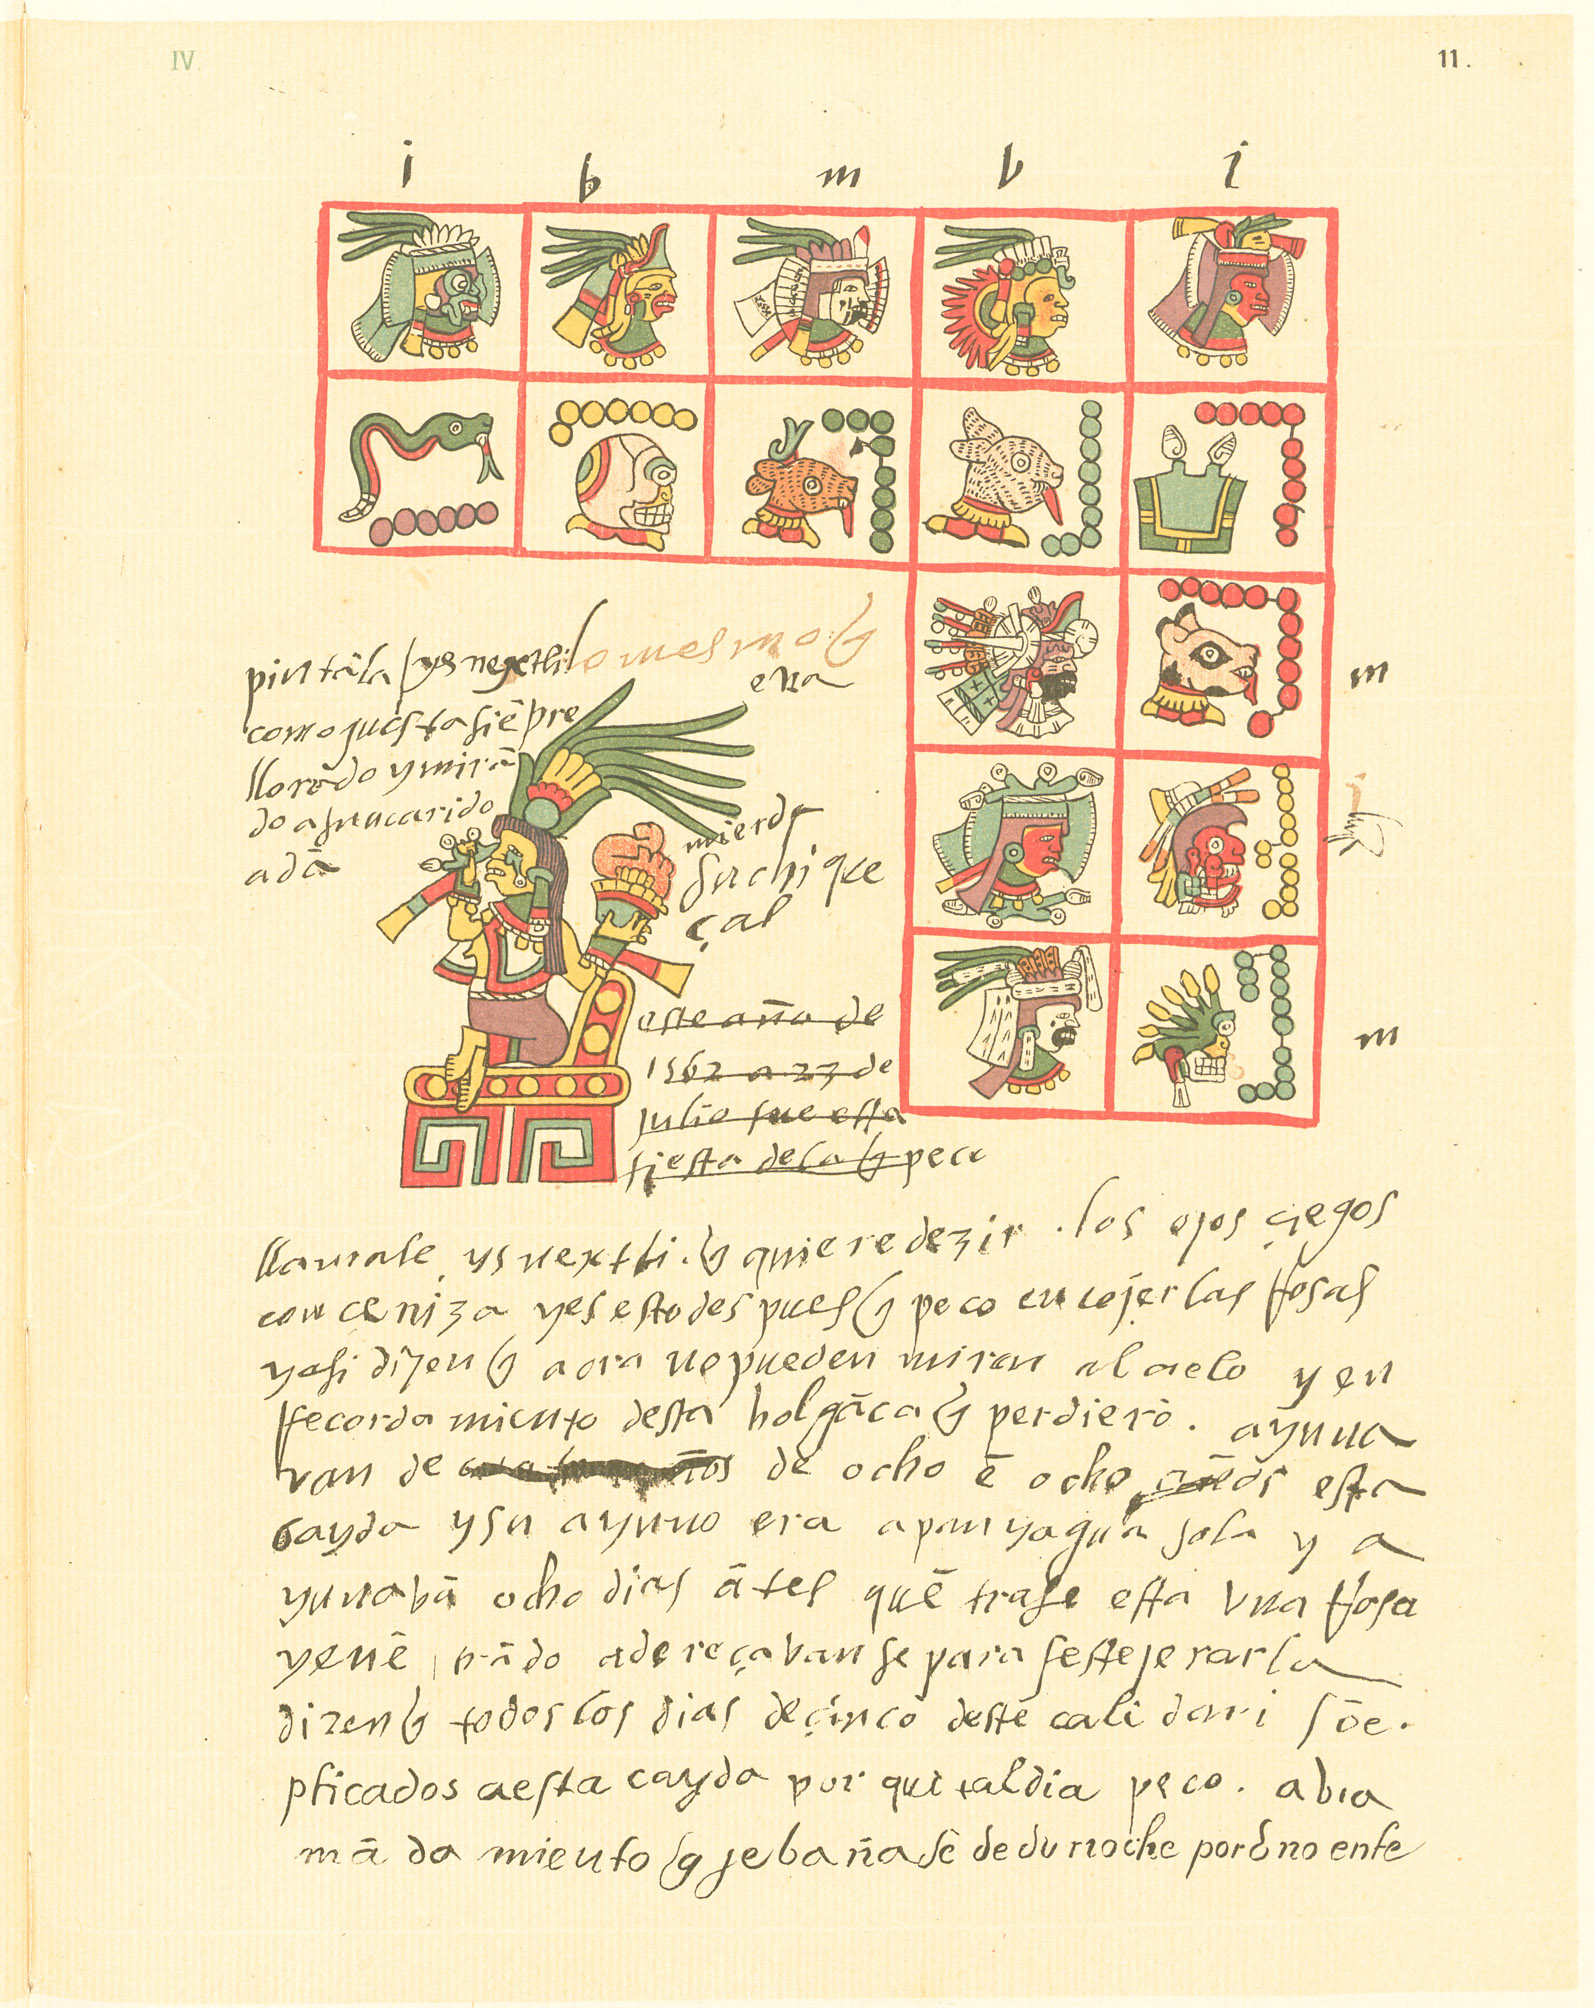 IV
11.
i b m v i
pintāla ysnextli lo mesmo q̃
eva
como questa siēpre
llorādo y mirā
do a su marido
adā
mierda
suchique
çal
m
m
este año de
1562 a 23 de
julio fue esta
fiesta de la q̃ peco
llamase ysnextli. q̃ quiere dezir. los ojos çiegos
con çeniza y es esto despues q̃ peco en cojer las rrosas
y asi dizen q̃ aora no pueden mirar al cielo y en
rrecordamiento desta holgāça q̃ perdierō. ayuna
van de años de ocho ē ocho años esta
cayda y su ayuno era a pan y agua sola y a
yunabā ocho dias ātes quē trase esta vna rrosa
y enē trādo adereçavanse para festejerarla
dizen q̃ todos los dias de çinco deste calēdari sō e.
plicados a esta cayda por que tal dia peco. abia
mā da miento q̃ se bañasē de noche por q̃ no enfe